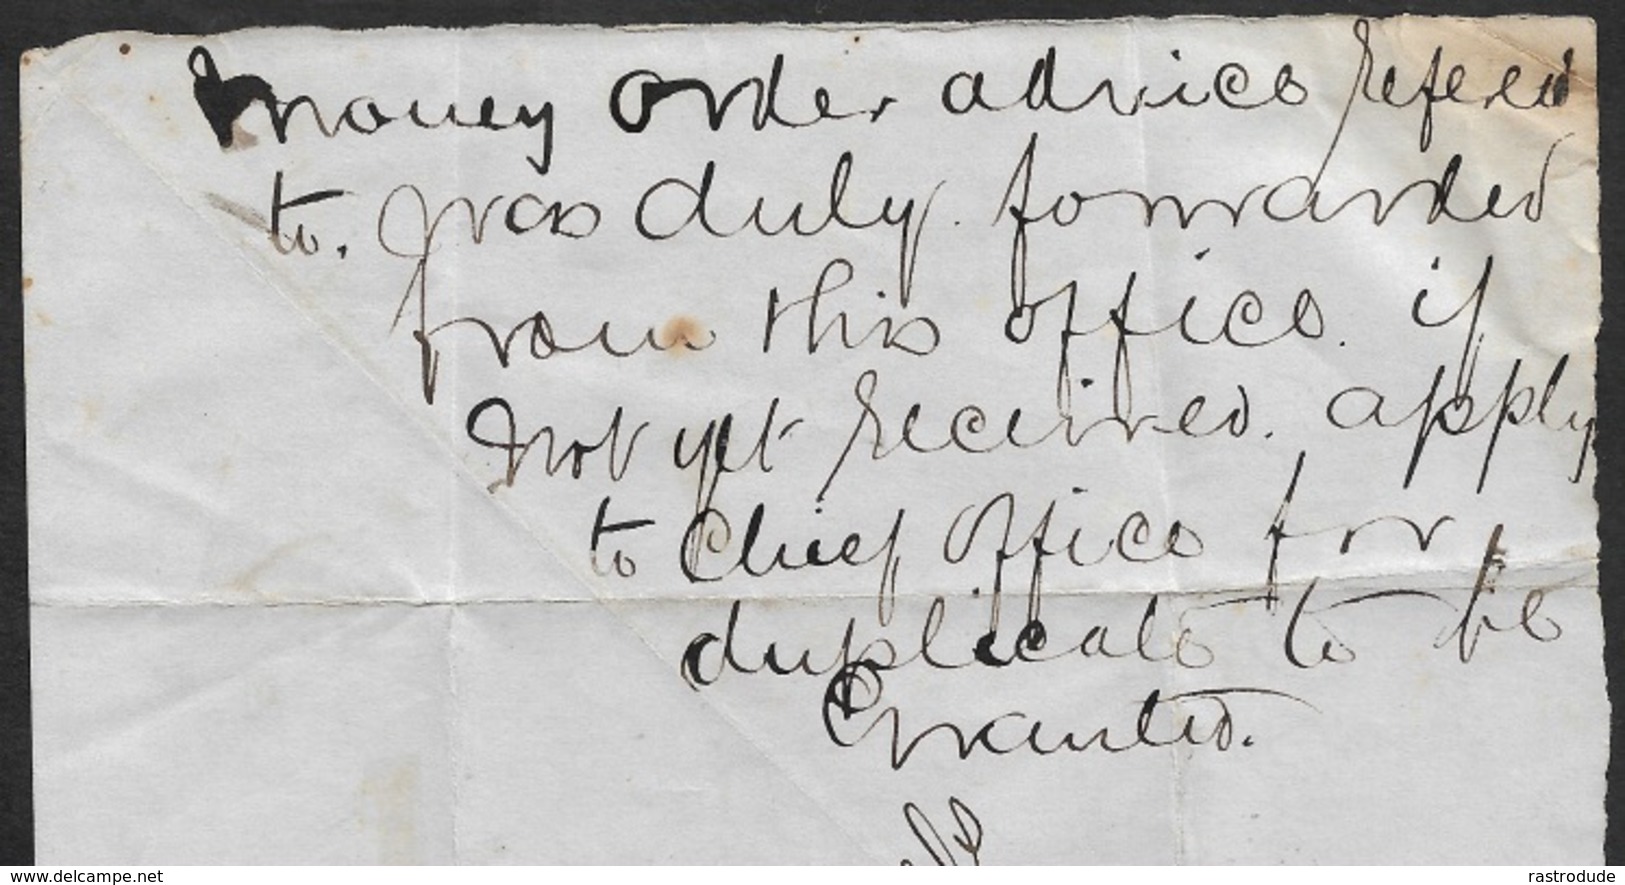 Money Order advice refered
to. was duly forwarded
from this office. if
not yet received. apply
to Chief Office for
duplicate to be
Granted.
www.delcampe.net
rastrodude